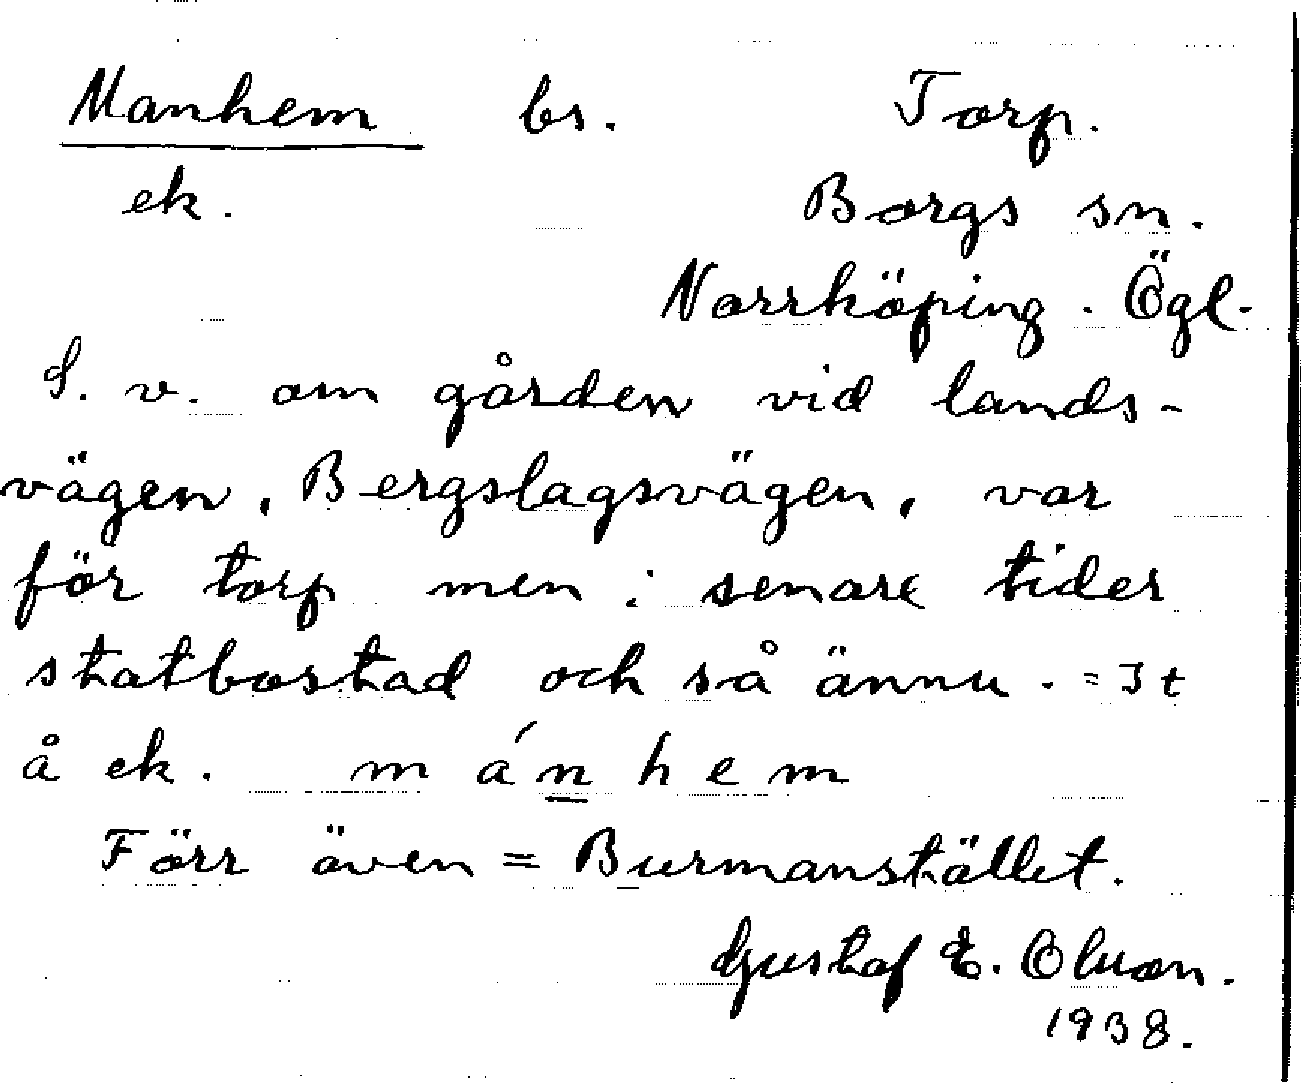 Manhem bs. Torp.
ek. Borgs sn.
Norrköping. Ögl.
S. v. om gården vid lands-
vägen, Bergslagsvägen, var
för torp men i senare tider
statbostad och så ännu. = 3 t
å ek. m á n h e m
Förr även = Burmanstället.
Gustaf E. Olsson.
1938.